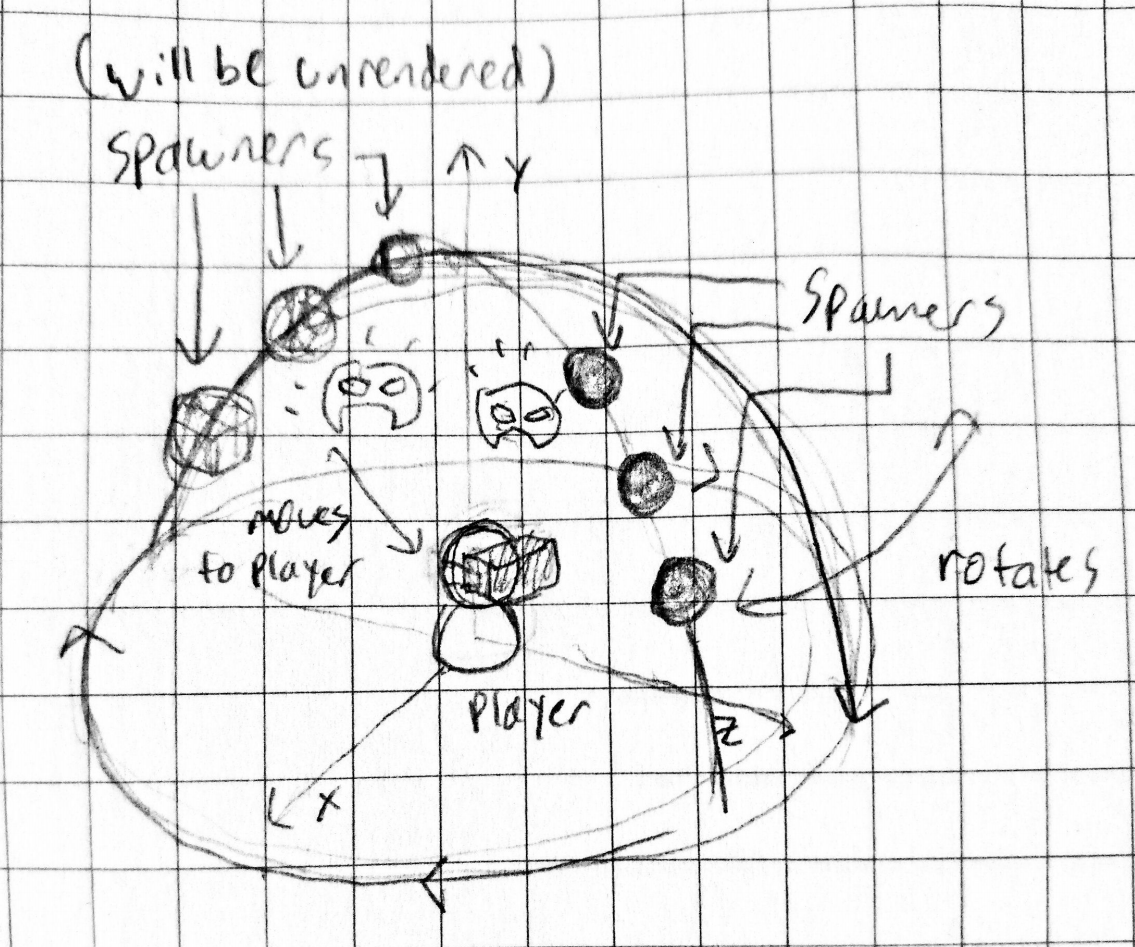 (will be unrendered)
spawners
Y
Spawners
moves
to player
rotates
player
Z
X